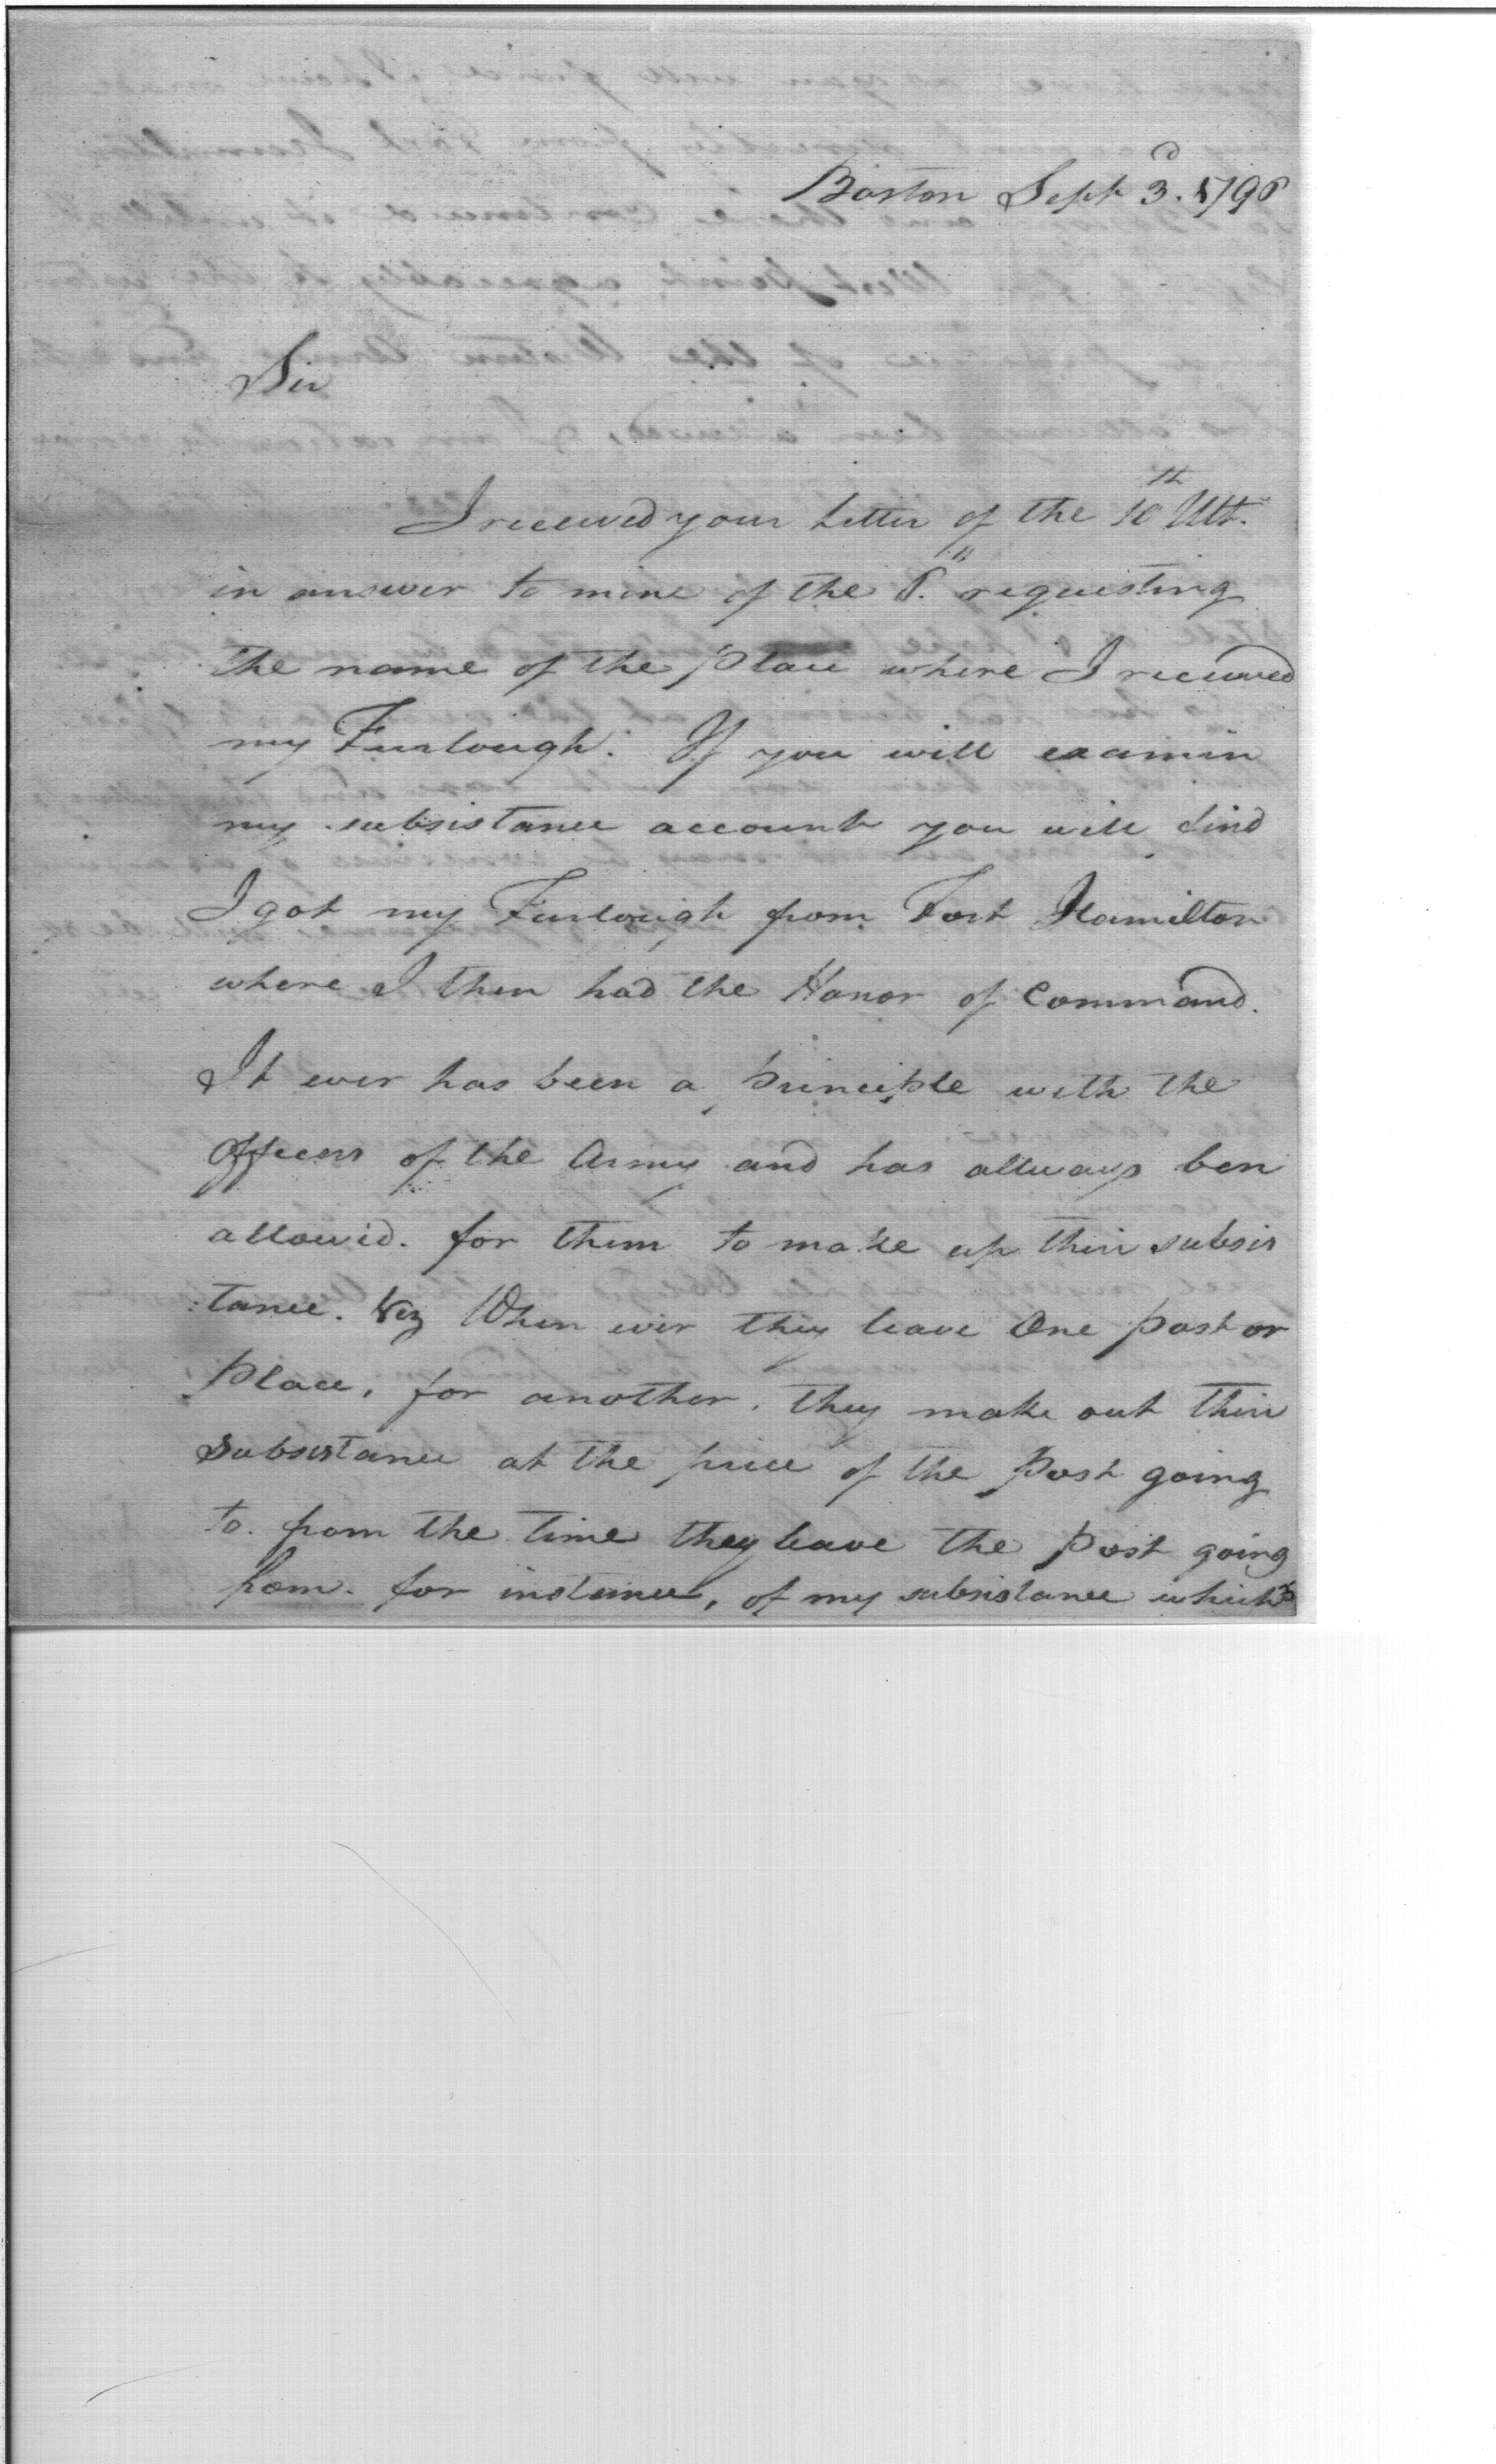 Boston Sept 3.d 1796
Sir
I received your letter of the 10th Ult.
in answer to mine of the requesting
the name of the Place where I received
my Furlough. If you will examin
my subsistance account you will find
I got my Furlough from Fort Hamilton
where I then had the Honor of Command.
It ever has been a principle with the
Officers of the Army and has allways ben
allowed. for them to make up their subsis
:tance. Viz When ever they leave One post or
Place, for another. they make out their
Subsistance at the price of the Post going
to. from the time they leave the Post going
from. for instance, of my subsistance which